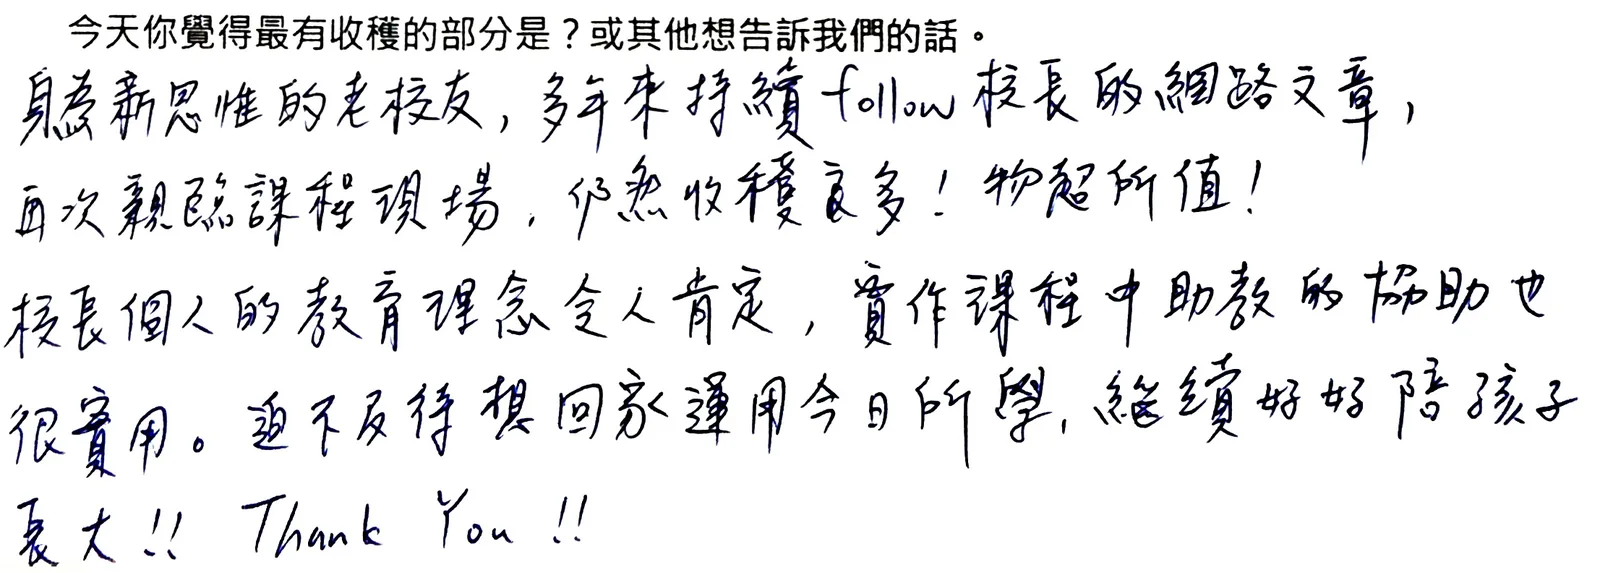 今天你覺得最有收穫的部分是？或其他想告訴我們的話。
身為新思惟的老校友，多年來持續follow校長的網路文章，
再次親臨課程現場，仍然收穫良多！物超所值！
校長個人的教育理念令人肯定，實作課程中助教的協助也
很實用。迫不及待想回家運用今日所學，繼續好好陪孩子
長大!! Thank You !!